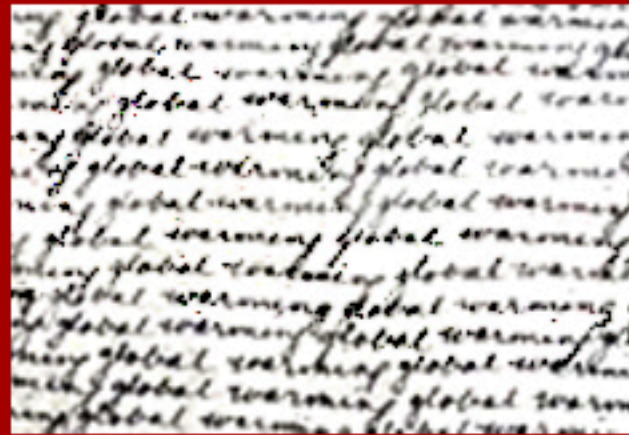 ing global warming global warming
ing global warming global warming glo
ing global warming global warm
ming global warming global warm
ing global warming global warmin
ing global warming global warmin
ming global warming global warming
ng global warming global warming
ming global warming global warmi
ng global warming global warming
ng global warming global warming gl
ming global warming global warmin
ming global warming global warm
ming global warming global warmin